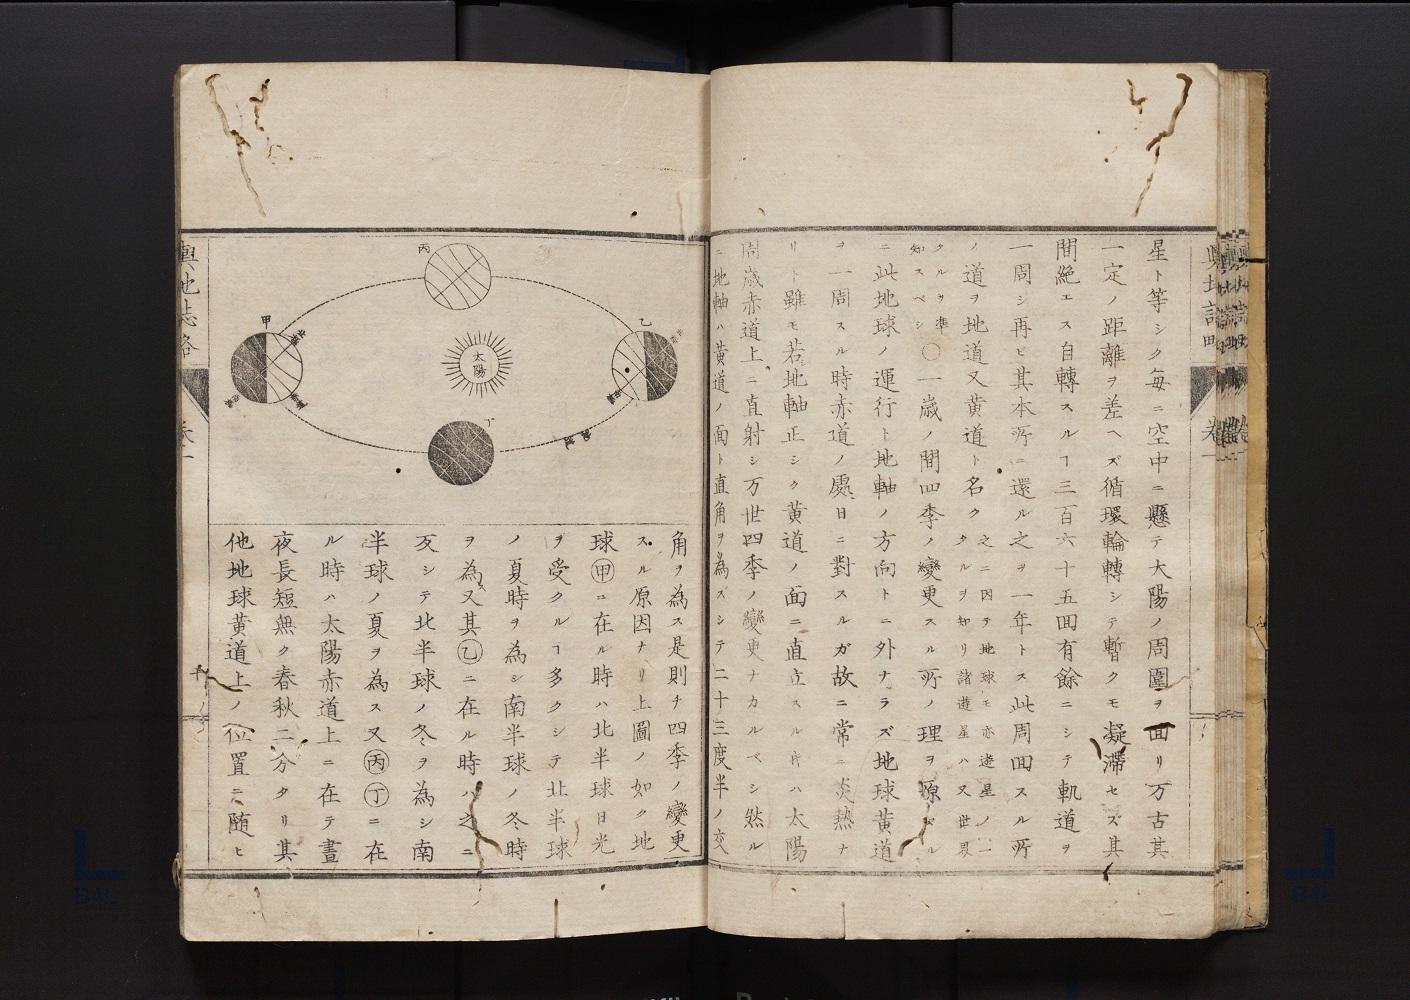 星ト等シク毎ニ空中ニ懸テ大陽ノ周圍ヲ面リ万古其
一定ノ距離ヲ差ヘズ循環輪轉シテ暫クモ凝滯セズ其
間絶エス自轉スルヿ三百六十五囬有餘ニシテ軌道ヲ
一周シ再ヒ其本所ニ還ル之ヲ一年トス此周囬スル所
ノ道ヲ地道又黄道ト名ク
之ニ因テ地球モ亦遊星ノ一
タルヲ知リ諸遊星ハ又世界
タルヿ準
知スベシ
〇一歳ノ間四季ノ變更スル所ノ理ヲ原ヌル
ニ此地球ノ運行ト地軸ノ方向トニ外ナラズ地球黄道
ヲ一周スル時赤道ノ處日ニ對スルガ故ニ常ニ炎熱ナ
リト雖モ若地軸正シク黄道ノ面ニ直立スル𪜈ハ太陽
周歳赤道上ニ直射シ万世四季ノ變更ナカルベシ然ル
ニ地軸ハ黄道ノ面ト直角ヲ為ズシテ二十三度半ノ交
丙
甲
乙
丁
太陽
角ヲ為ス是則チ四季ノ變更
スル原因ナリ上圖ノ如ク地
球甲ニ在ル時ハ北半球日光
ヲ受クルヿ多クシテ北半球
ノ夏時ヲ為シ南半球ノ冬時
ヲ為又其乙ニ在ル時ハ之ニ
反シテ北半球ノ冬ヲ為シ南
半球ノ夏ヲ為ス又丙丁ニ在
ル時ハ太陽赤道上ニ在テ晝
夜長短無ク春秋二分タリ其
他地球黄道上ノ位置ニ随ヒ
輿地誌略